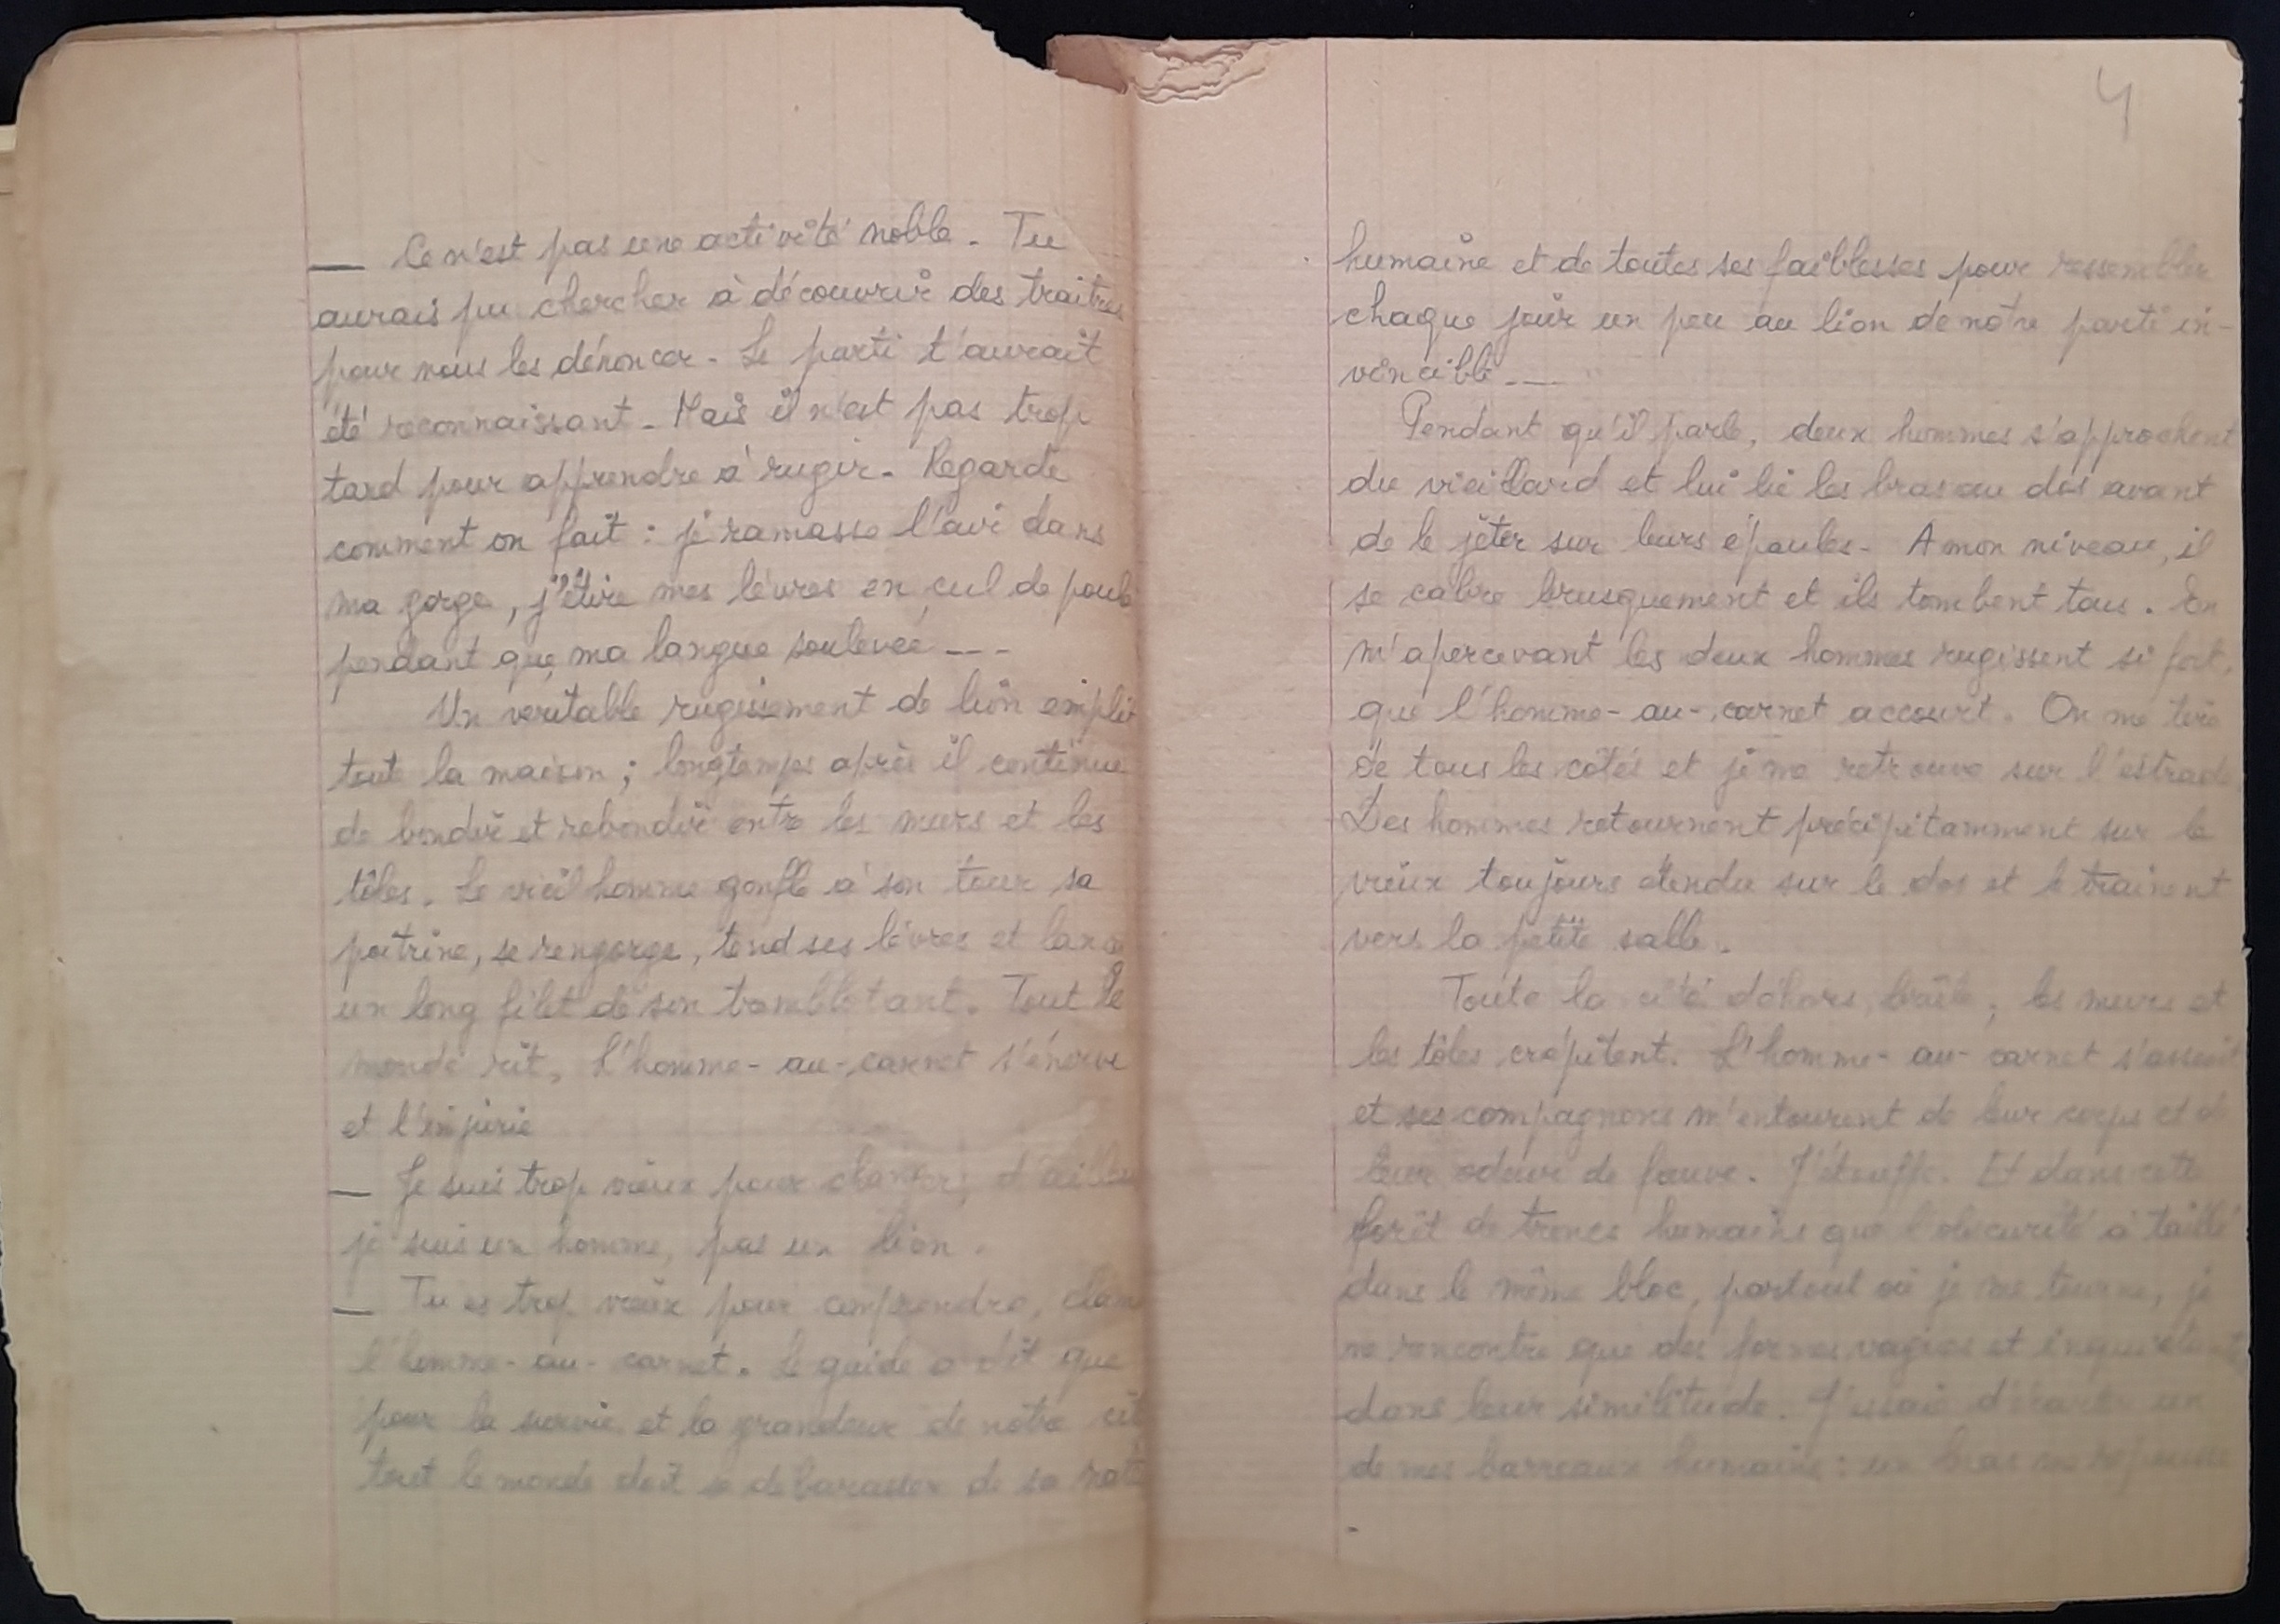 — Ce n'est pas une activité noble. Tu
aurais pu chercher à découvrir des traitres
pour nous les dénoncer. Le parti t'aurait
été reconnaissant. Mais il n'est pas trop
tard pour apprendre à rugir. Regarde
comment on fait : je ramasse l'air dans
ma gorge, j'étire mes lèvres en cul de poule
pendant que ma langue soulevée ---
Un veritable rugissement de lion emplit
tout la maison ; longtemps après il continue
de bondir et rebondir entre les murs et les
tôles. Le vieil homme gonfle à son tour sa
poitrine, se rengorge, tend ses lèvres et lance
un long filet de son tremblotant. Tout le
monde rit. L'homme-au-carnet s'énerve
et l'injurie
— Je suis trop vieux pour changer, d'ailleu
je suis un homme, pas un lion.
— Tu es trop vieux pour comprendre, clame
l'homme-au-carnet. Le guide a dit que
pour la survie et la grandeur de notre cité
tout le monde doit se debarasser de sa
4
humaine et de toutes ses faiblesses pour ressembler
chaque jour un peu au lion de notre parti in-
vincible ---
Pendant qu'il parle, deux hommes s'approchent
du vieillard et lui lie les bras au dos avant
de le jeter sur leurs épaules. A mon niveau, il
se cabre brusquement et ils tombent tous. En
m'apercevant les deux hommes rugissent si fort,
que l'homme-au-carnet accourt. On me tire
de tous les côtés et je me retrouve sur l'estrade
Des hommes retournent précipitamment sur le
vieux toujours étendu sur le dos et le trainent
vers la petite salle.
Toute la cité dehors, brûle, les murs et
les tôles crépitent. L'homme-au-carnet s'asseoit
et ses compagnons m'entourent de leur corps et de
leur odeur de fauve. J'étouffe. Et dans cette
forêt de troncs humains que l'obscurité a taillé
dans le même bloc, partout où je me tourne, je
ne rencontre que des formes vagues et inquiétantes
dans leur similitude. J'essaie d'écarter un
de mes barreaux humains : un bras me repousse